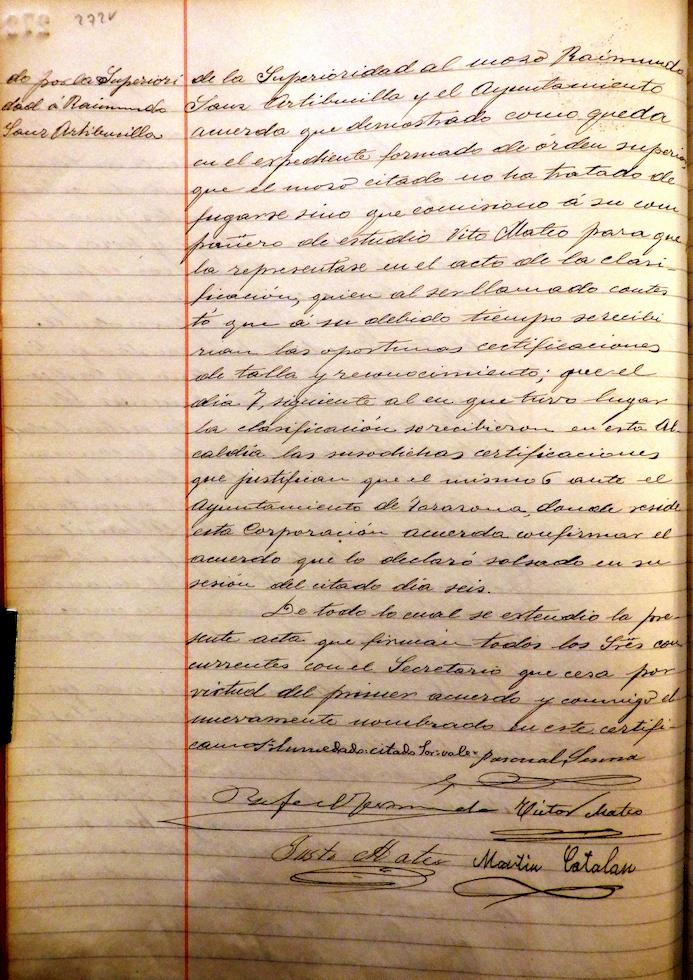 272v
do por la Superiori
dad á Raimundo
Sanz Artibucilla
de la Superioridad al mozo Raimundo
Sanz Artibucilla y el Ayuntamiento
acuerda que demostrado como queda
en el expediente formado de órden superior
que el mozo citado no ha tratado de
fugarse sino que comisiono á su com
pañero de estudio Vito Mateo para que
la representase en el acto de la clasi-
ficación, quien al ser llamado contes
tó que á su debido tiempo se recibi
rian las oportunas certificaciones
de talla y reconocimiento; que el
dia 7, siguiente al en que tuvo lugar
la clasificación se recibieron en esta Al
caldia las susodichas certificaciones
que justifican que el mismo 6 ante el
Ayuntamiento de Tarazona, donde reside
esta Corporación acuerda confirmar el
acuerdo que lo declaró solsado en su
sesión del citado dia seis.
De todo lo cual se estendio la pre-
sente acta que firman todos los Sres con
currentes con el Secretario que cesa por
virtud del primer acuerdo y conmigo el
nuevamente nombrado en este, certifi-
camos citado vale Pascual
Victor Mateo
Justo Mateo Martin Catalan